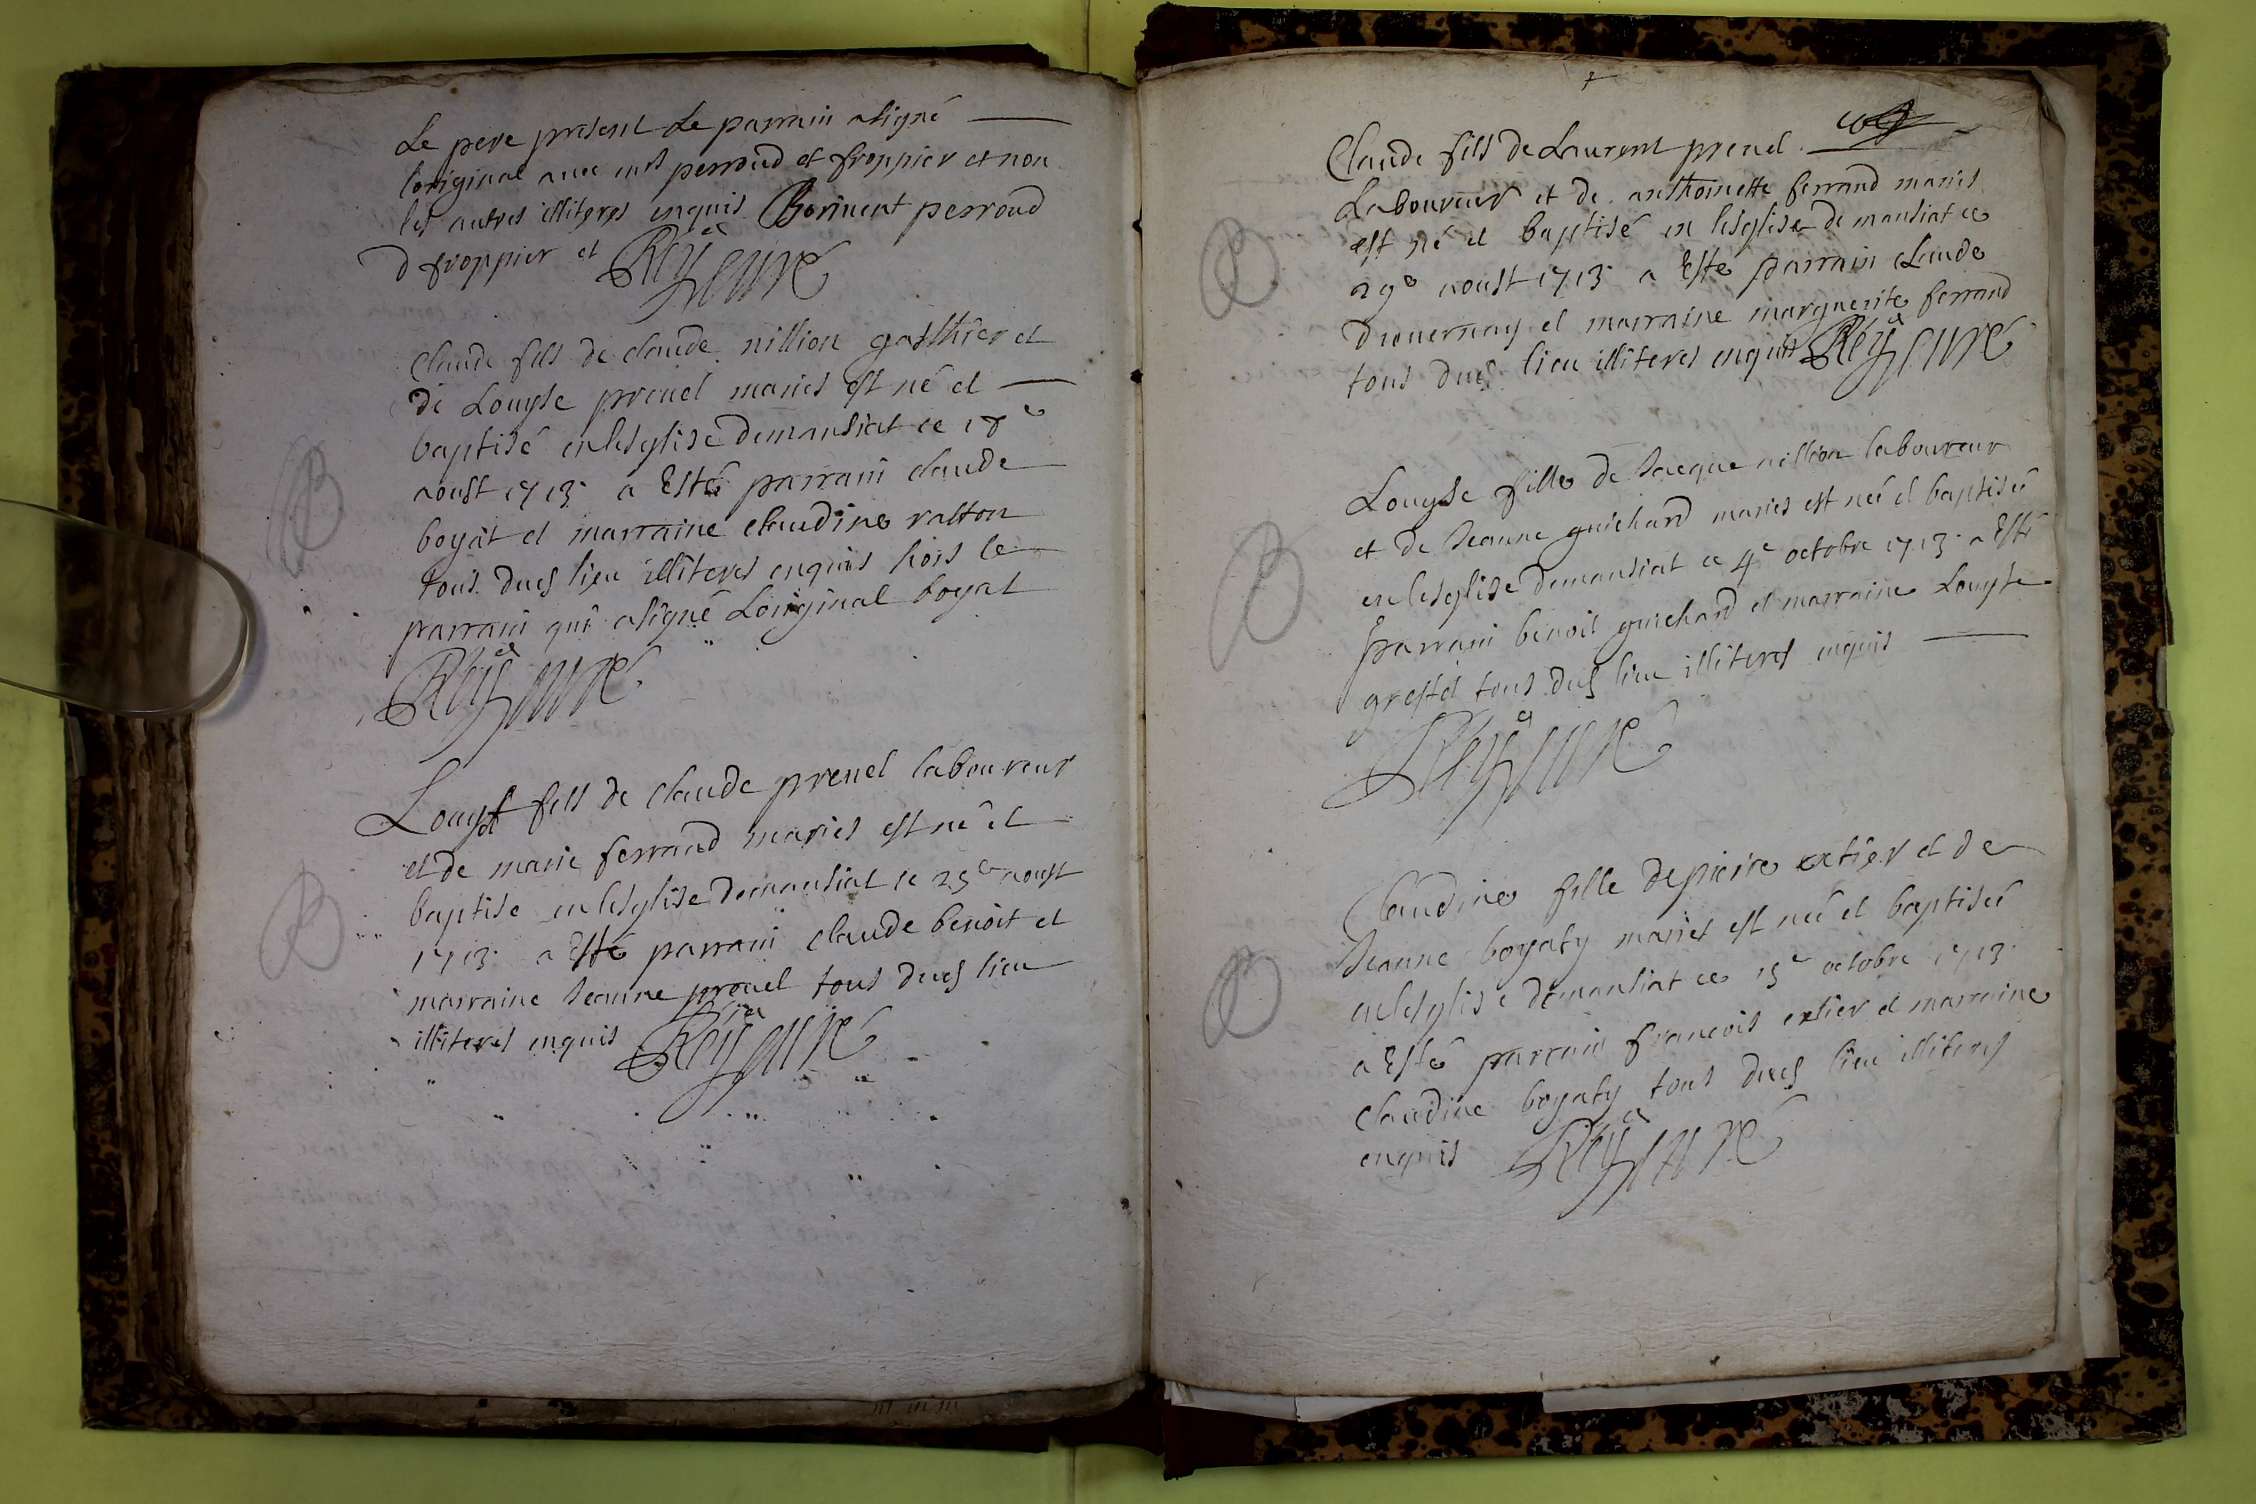 Le pere present Le parrain asigné
loriginal avec mrs perroud et froppier et non
les autres illiteres enquis perroud
d froppier et Rey curé
Claude fils de claude nillion gasthier et
de Louyse prevel maries est né et
baptisé en lesglise demansiat ce 18e
aoust 1713. a Esté parrain claude
boyat et marraine claudine ratton
tous dud lieu illiteres enquis hors le
parrain qui asigné Loriginal boyat
Rey curé
Louys fils de claude prevel laboureur
et de marie ferrand maries est né et
baptise en lesglise demansiat ce 25e aoust
1713. a Esté parrain claude benoit et
marraine Jeanne prevel tous dud lieu
illiteres enquis Rey curé
Claude fils de Laurent prevel
Laboureur et de anthoinette ferrand maries
est né et baptisé en lesglise de mansiat ce
29e aoust 1713. a Esté parrain claude
et marraine marguerite ferrand
tous dud lieu illiteres enquis Rey curé
Louyse fille de Jacque nillion laboureur
et de Jeanne guichard maries est neé et baptiseé
en lesglise demansiat ce 4e octobre 1713. a Esté
parrain benoit guichard et marraine Louyse
grestel tous dud lieu illiteres enquis
Rey curé
Claudine fille depierre extier et de
Jeanne boyaty maries est neé et baptiseé
en lesglise demansiat ce 15e octobre 1713.
a Esté parrain francois extier et marraine
claudine boyaty tous dud lieu illiteres
enquis Rey curé